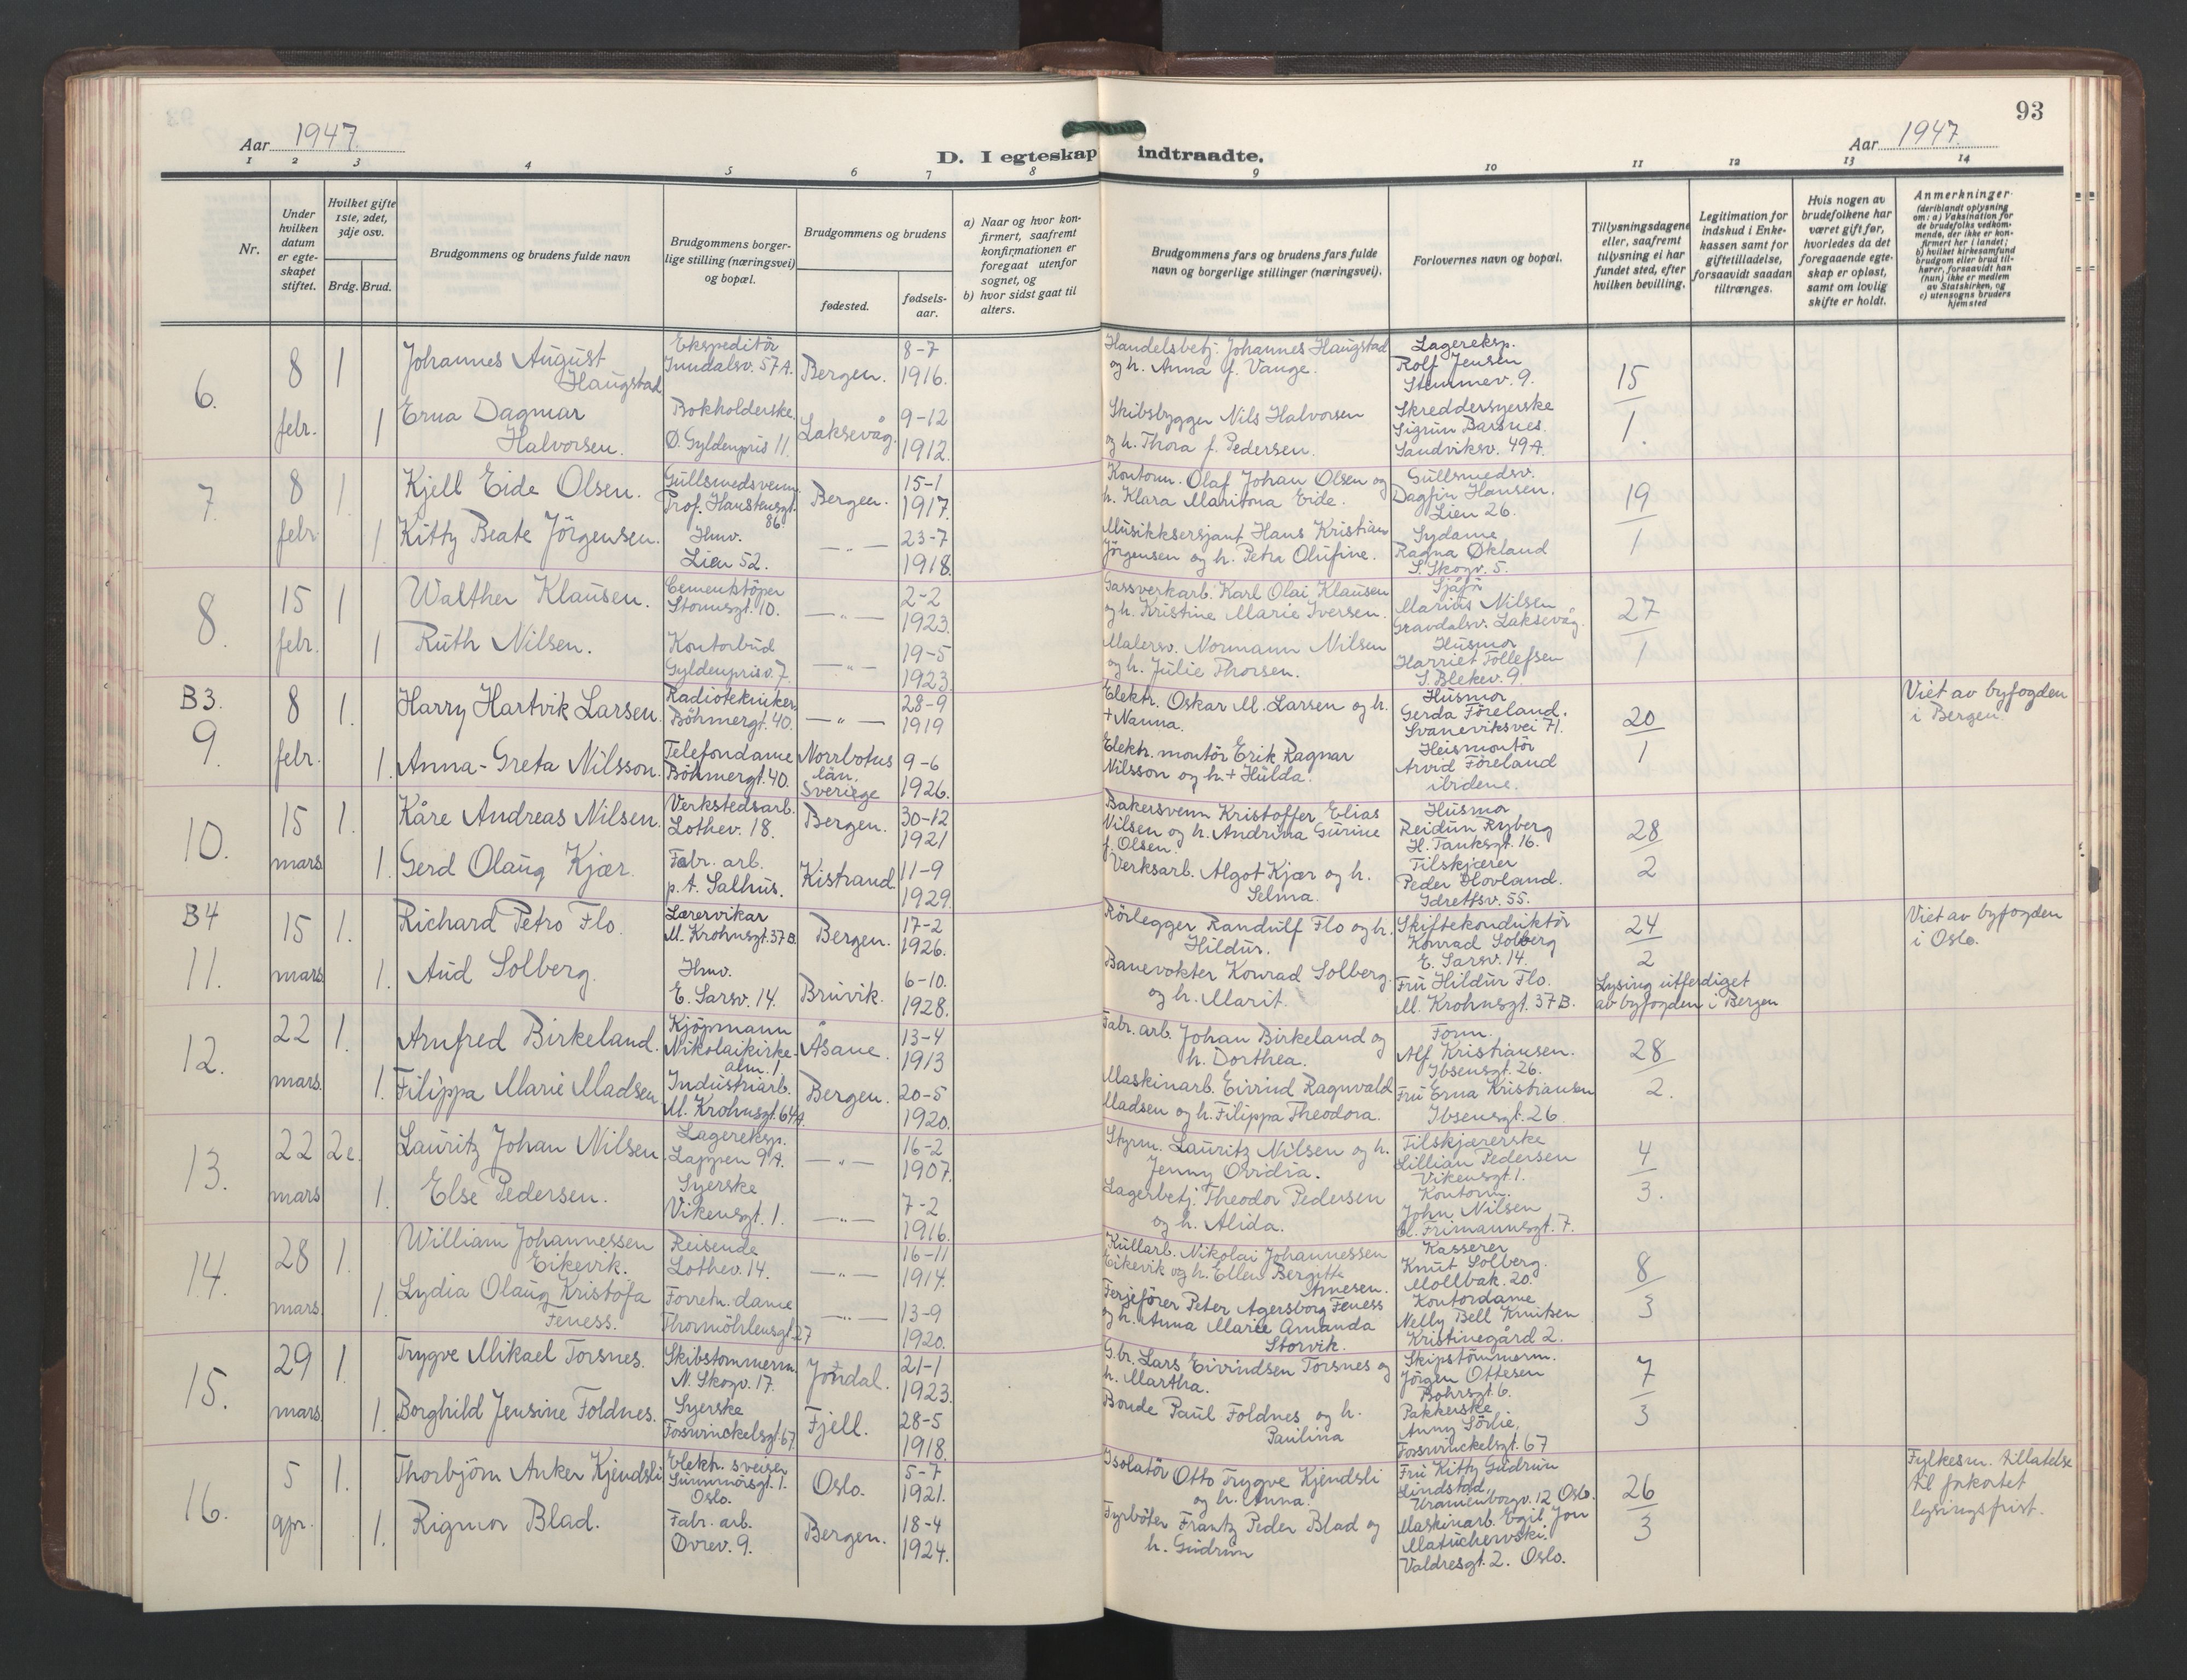 93
Aar 1947.
Aar 1947.
D. I egteskap indtraadte.
1 2 3 4 5 6 7 8 9 10 11 12 13 14
Nr.
Under hvilken datum er egteskapet stiftet.
Hvilket gifte 1ste, 2det, 3dje osv.
Brdg. Brud.
Brudgommens og brudens fulde navn
Brudgommens borgerlige stilling (næringsvei) og bopæl.
Brudgommens og brudens
fødested.
fødselsaar.
a) Naar og hvor konfirmert, saafremt konfirmationen er foregaat utenfor sognet, og
b) hvor sidst gaat til alters.
Brudgommens fars og brudens fars fulde navn og borgerlige stillinger (næringsvei).
Forlovernes navn og bopæl.
Tillysningsdagene eller, saafremt tillysning ei har fundet sted, efter hvilken bevilling.
Legitimation for indskud i Enkekassen samt for giftetilladelse, forsaavidt saadan tiltrænges.
Hvis nogen av brudefolkene har været gift før, hvorledes da det foregaaende egteskap er opløst, samt om lovlig skifte er holdt.
Anmerkninger (deriblandt oplysning om: a) Vaksination for de brudefolks vedkommende, der ikke er konfirmert her i landet; b) hvilket kirkesamfund brudgom eller brud tilhører, forsaavidt han (hun) ikke er medlem av Statskirken, og c) utensogns bruders hjemsted
6.
8 febr.
1
Johannes August Haugstad
Ekspeditör
57A.
Bergen.
8-7 1916.
Handelsbetj. Johannes Haugstad og h. Anna f. Vange.
Lagereksp. Rolf Jensen Stemmev. 9.
15/1.
1
Erna Dagmar Halvorsen.
Bokholderske Ø. Gyldenpris 11.
Laksevåg.
9-12 1912.
Skibsbygger Nils Halvorsen og h. Thora f. Pedersen.
Skreddersyerske Sigrun Barsnes. Sandviksv. 49A.
7.
8 febr.
1
Kjell Eide Olsen.
Gullsmedsvenn. Prof. Hanstensgt. 86.
Bergen.
15-1 1917.
Kontorm. Olaf Johan Olsen og h. Klara Eide.
Gullsmedsv. Dagfin Hansen. Lien 26.
19/1
1
Kitty Beate Jörgensen.
Hmv. Lien 52.
— „ —
23-7 1918.
Musikksersjant Hans Kristian Jörgensen og h. Petra Olufine.
Sydame Ragna Økland S. Skogv. 5.
8.
15 febr.
1
Walther Klausen.
Cementstöper Stormsgt. 10.
— „ —
2-2 1923.
Gassverkarb. Karl Olai Klausen og h. Kristine Marie Iversen.
Sjåfør Marius Nilsen Gravdalsv. Laksevåg.
27/1
1
Ruth Nilsen.
Kontorbud Gyldenprisv. 7.
— „ —
19-5 1923.
Malersv. Normann Nilsen og h. Julie Thorsen.
Husmor Harriet Tollefsen S. Blekev. 9.
B3. 9.
8 febr.
1.
Harry Hartvik Larsen.
Radiotekniker Böhmergt. 40.
— „ —
28-9 1919
Elektr. Oskar M. Larsen og h. + Nanna.
Husmor Gerda Föreland. Svaneviksvei 71.
20/1
Viet av byfogden i Bergen.
1.
Anna-Greta Nilsson.
Telefondame Böhmergt. 40.
Norrbotus län. Sveriege
9-6 1926.
Elektr. montör Erik Ragnar Nilsson og h. + Hulda.
Heismontör Arvid Föreland ibidene.
10.
15 mars
1.
Kåre Andreas Nilsen.
Verkstedsarb. Lothev. 18.
Bergen.
30-12 1921
Bakersvenn Kristoffer Elias Nilsen og h. Andrina Gurine f. Olsen.
Husmor Reidun Ryberg H. Tanksgt. 16.
28/2
1.
Gerd Olaug Kjær.
Fabr. arb. p.t. Salhus.
Kistrand
11-9 1929.
Verksarb. Algot Kjær og h. Selma.
Tilskjærer Peder Hovland. Idrettsv. 55.
B4 11.
15 mars
1.
Richard Petro Flo.
Lærervikar M. Krohnsgt. 37B.
Bergen.
17-2 1926.
Rörlegger Randulf Flo og h. Hildur.
Skiftekonduktör Konrad Solberg E. Sarsv. 14.
24/2
Viet av byfogden i Oslo.
1.
Aud Solberg.
Hmv. E. Sarsv. 14.
Bruvik.
6-10. 1928.
Banevokter Konrad Solberg. og h. Marit.
Fru Hildur Flo. M. Krohnsgt. 37B.
Lysing utferdiget av byfogden i Bergen
12.
22 mars.
1.
Arnfred Birkeland.
Kjöpmann Nikolaikirkealm. 1.
Åsane.
13-4 1913
Fabr. arb. Johan Birkeland og h. Dorthea.
Form. Alf Kristiansen. Ibsensgt. 26.
28/2.
1.
Filippa Marie Madsen
Industriarb. M. Krohnsgt. 64A.
Bergen.
20-5 1920.
Maskinarb. Eivind Ragnvald Madsen og h. Filippa Theodora.
Fru Erna Kristiansen Ibsensgt. 26.
13.
22 mars
2e.
Lauritz Johan Nilsen.
Lagereksp. Lappen 9A.
— „ —
16-2 1907.
Styrm. Lauritz Nilsen og h. Jenny Ovidia.
Tilskjærerske Lillian Pedersen Vikensgt. 1.
4/3.
1.
Else Pedersen.
Syerske Vikensgt. 1.
— „ —
7-2 1916.
Lagerbetj. Theodor Pedersen og h. Alida.
Kontorm. John Nilsen Cl. Frimannsgt. 7.
14.
28 mars
1.
William Johannessen Eikevik.
Reisende Lothev. 14.
— „ —
16-11 1914.
Kullarb. Nikolai Johannessen Eikevik og h. Ellen Bergitte Arnesen.
Kasserer Knut Solberg. Mollbak. 20.
8/3
1.
Lydia Olaug Kristofa Feness.
Forretn. dame Thormöhlensgt. 27
— „ —
13-9 1920.
Ferjeförer Peter Agersborg Feness og h. Anna Marie Amanda Storvik.
Kontordame Nelly Bell Knutsen Kristinegård 2.
15.
29 mars
1.
Trygve Mikael Torsnes.
Skibstømmerm. N. Skogv. 17.
Jondal.
21-1 1923.
G.br. Lars Eivindsen Torsnes og h. Martha.
Skipstömmerm. Jörgen Ottesen Bohrsgt. 6.
7/3
1.
Borghild Jensine Foldnes.
Syerske Fosswinckelsgt. 67
Fjell.
28-5 1918.
Bonde Paul Foldnes og h. Paulina
Pakkerske Anny Sörlie, Fosswinckelsgt. 67
16.
5 apr.
1.
Thorbjörn Anker Kjendsli
Elektr. sveiser Sunnmörsgt. 1. Oslo.
Oslo.
5-7 1921.
Isolatör Otto Trygve Kjendsli og h. Anna.
Fru Kitty Gudrun Lindstad, Uranienborgv. 12 Oslo.
26/3
Fylkesm. tillatelse til forkortet lysingsfrist.
1.
Rigmor Blad.
Fabr. arb. Øvrev. 9.
Bergen.
18-4 1924.
Fyrböter Frantz Peder Blad og h. Gudrun
Maskinarb. Egil Jon Valdresgt. 2. Oslo.